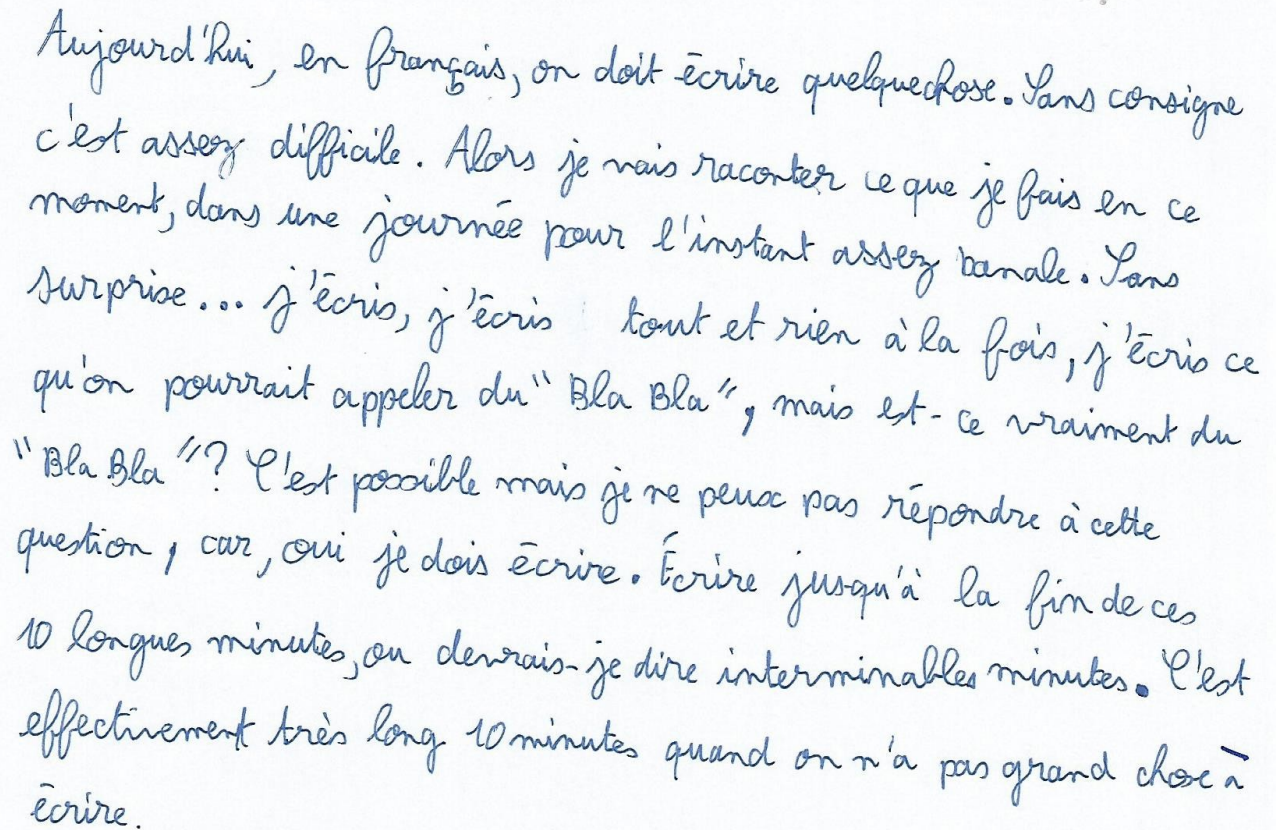 Aujourd'hui, en français, on doit écrire quelquechose. Sans consigne
c'est assez difficile. Alors je vais raconter ce que je fais en ce
moment, dans une journée pour l'instant assez banale. Sans
surprise... j'écris, j'écris tout et rien à la fois, j'écris ce
qu'on pourrait appeler du "Bla Bla", mais est-ce vraiment du
"Bla Bla"? C'est possible mais je ne peux pas répondre à cette
question, car, oui je dois écrire. Écrire jusqu'à la fin de ces
10 longues minutes, ou devrais-je dire interminables minutes. C'est
effectivement très long 10 minutes quand on n'a pas grand chose à
écrire.